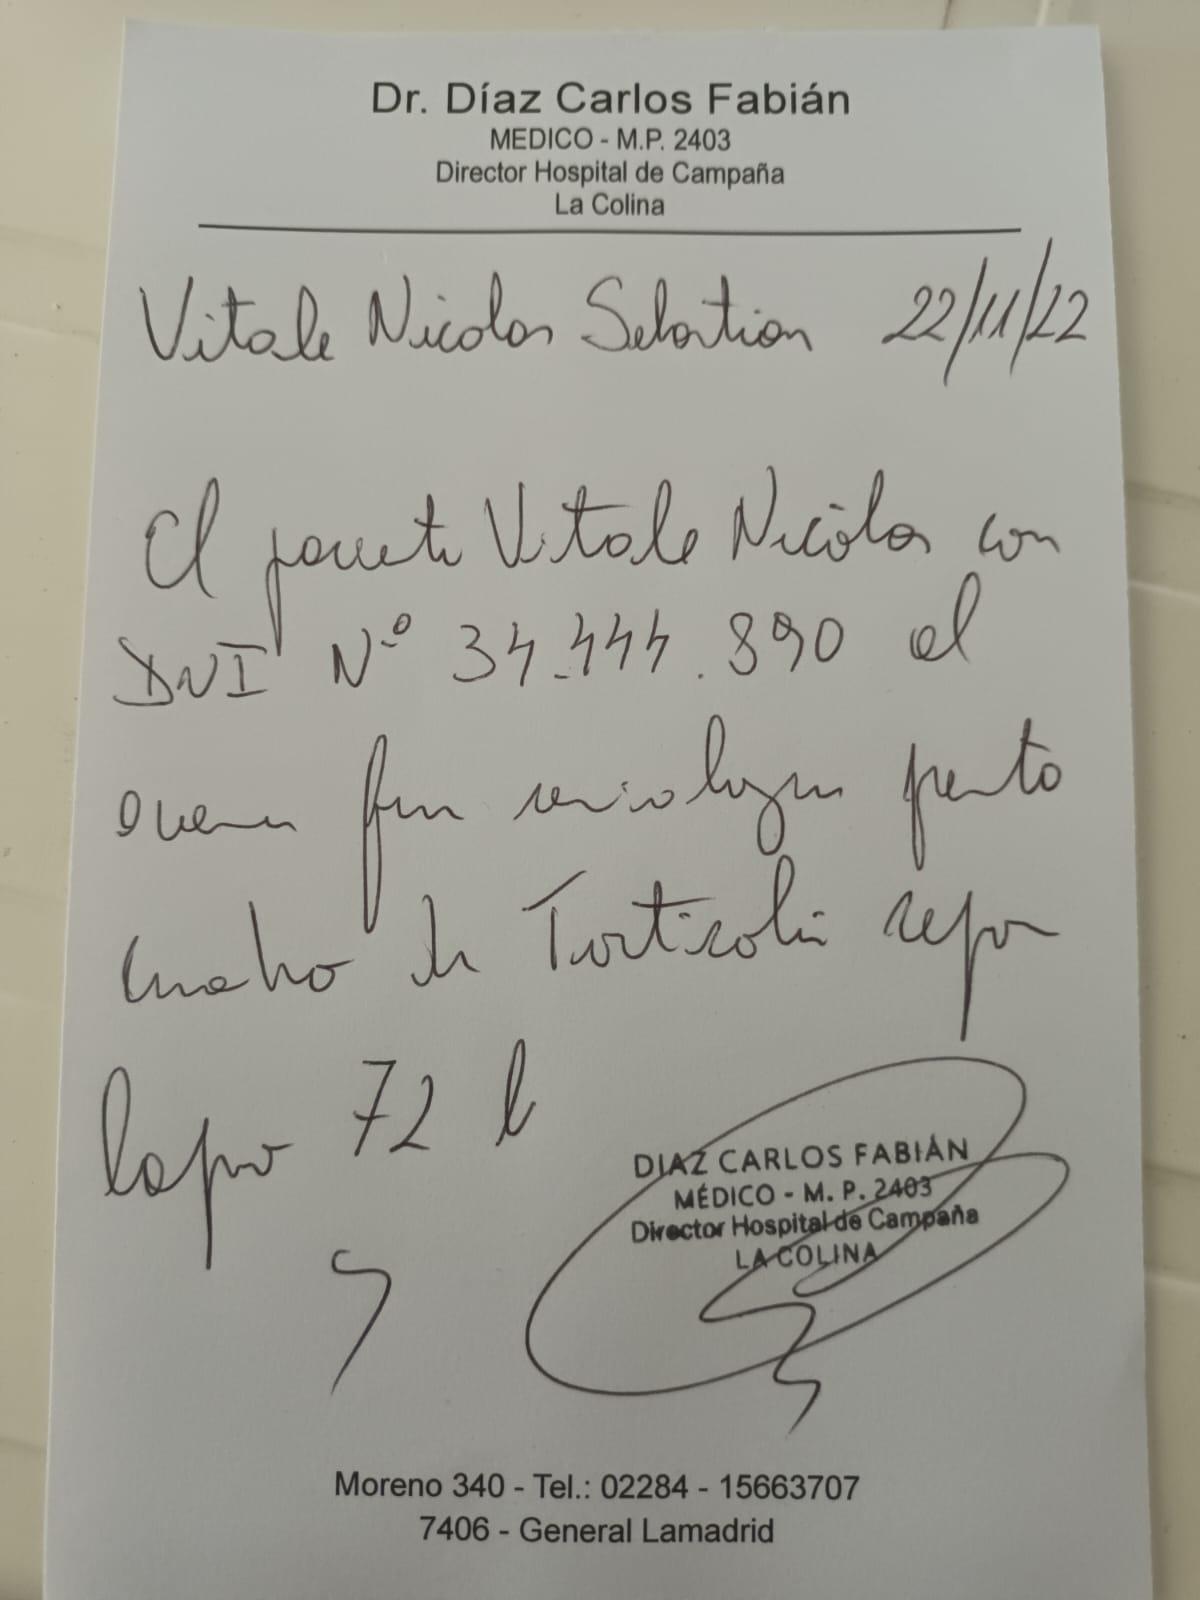 Dr. Díaz Carlos Fabián
MEDICO - M.P. 2403
Director Hospital de Campaña
La Colina
Vitale Nicolas Sebastian 22/11/22
El paciente Vitale Nicolas con
DNI Nº 34.444.890 al
examen fisico semiologico presenta
cuadro de Torticolis repo
lapso 72 h
DIAZ CARLOS FABIÁN
MÉDICO - M. P. 2403
Director Hospital de Campaña
LA COLINA
Moreno 340 - Tel.: 02284 - 15663707
7406 - General Lamadrid